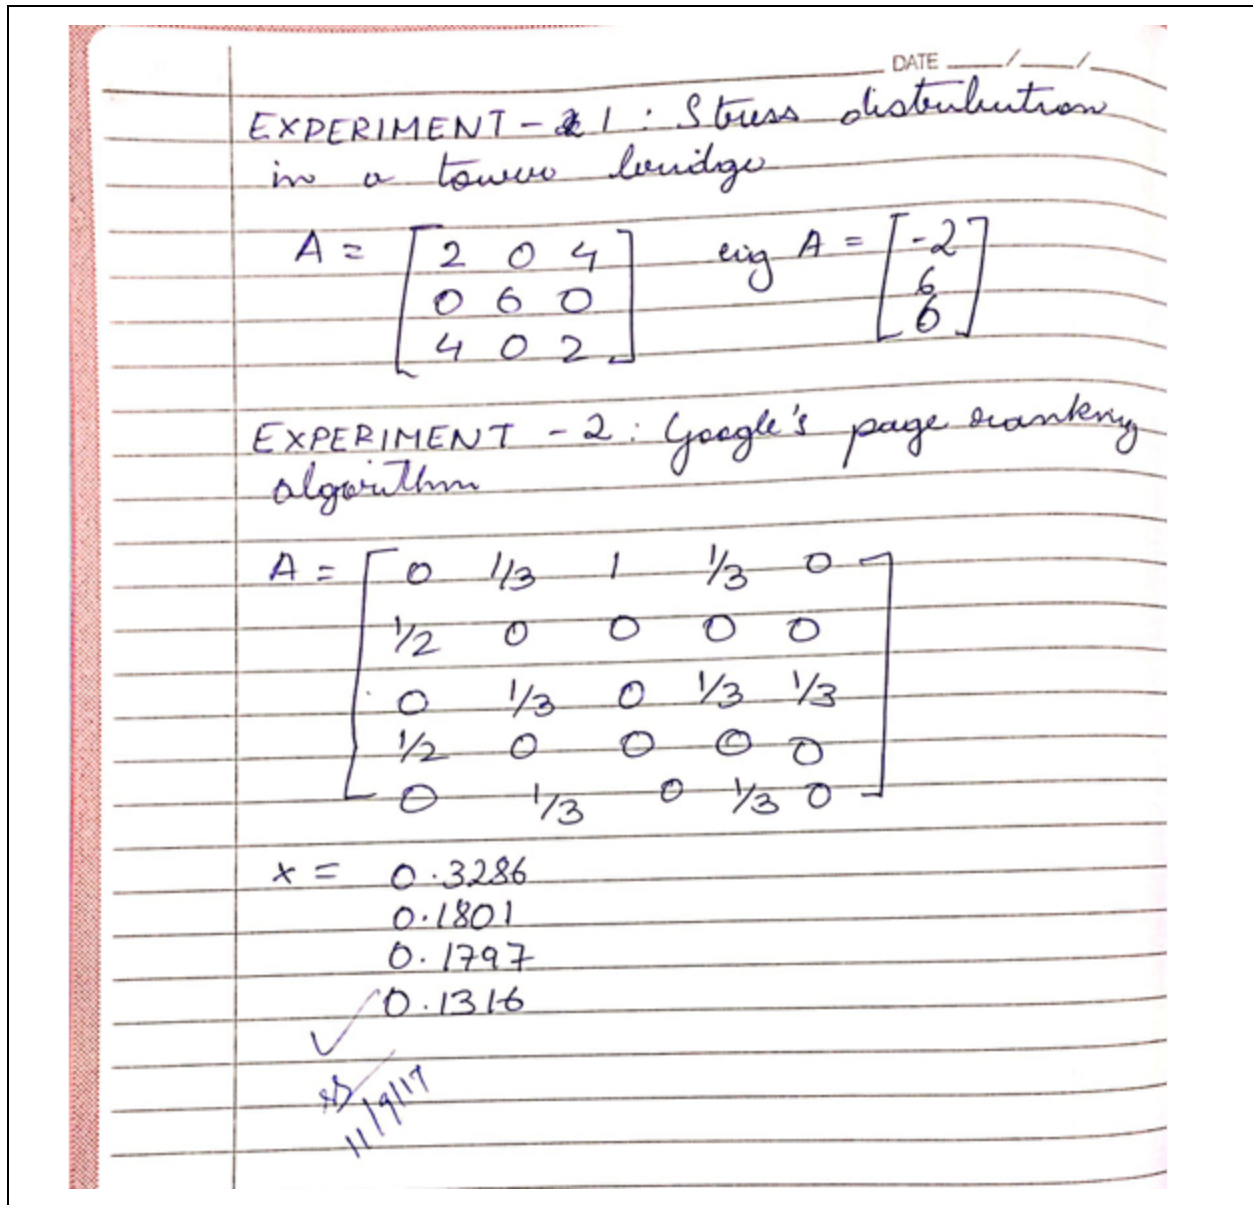 DATE / /
EXPERIMENT - 1 : Stress distribution
in a tower bridge
A = [ 2 0 4 eig A = [ -2
0 6 0 6
4 0 2 ] 6 ]
EXPERIMENT - 2 : Google's page ranking
algorithm
A = [ 0 1/3 1 1/3 0
1/2 0 0 0 0
0 1/3 0 1/3 1/3
1/2 0 0 0 0
0 1/3 0 1/3 0 ]
x = 0.3286
0.1801
0.1797
0.1316
11/9/17